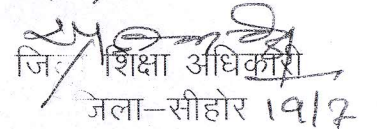 जि शिक्षा अधिकारी
जला-सीहोर 19/7